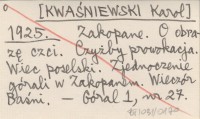 [KWAŚNIEWSKI Karol]
1925. Zakopane. O obra-
zę czci. Czyżby prowokacja.
Wiec poselski. Zjednoczenie
górali w Zakopanem. Wieczór
Baśni. — Góral 1, nr 27.